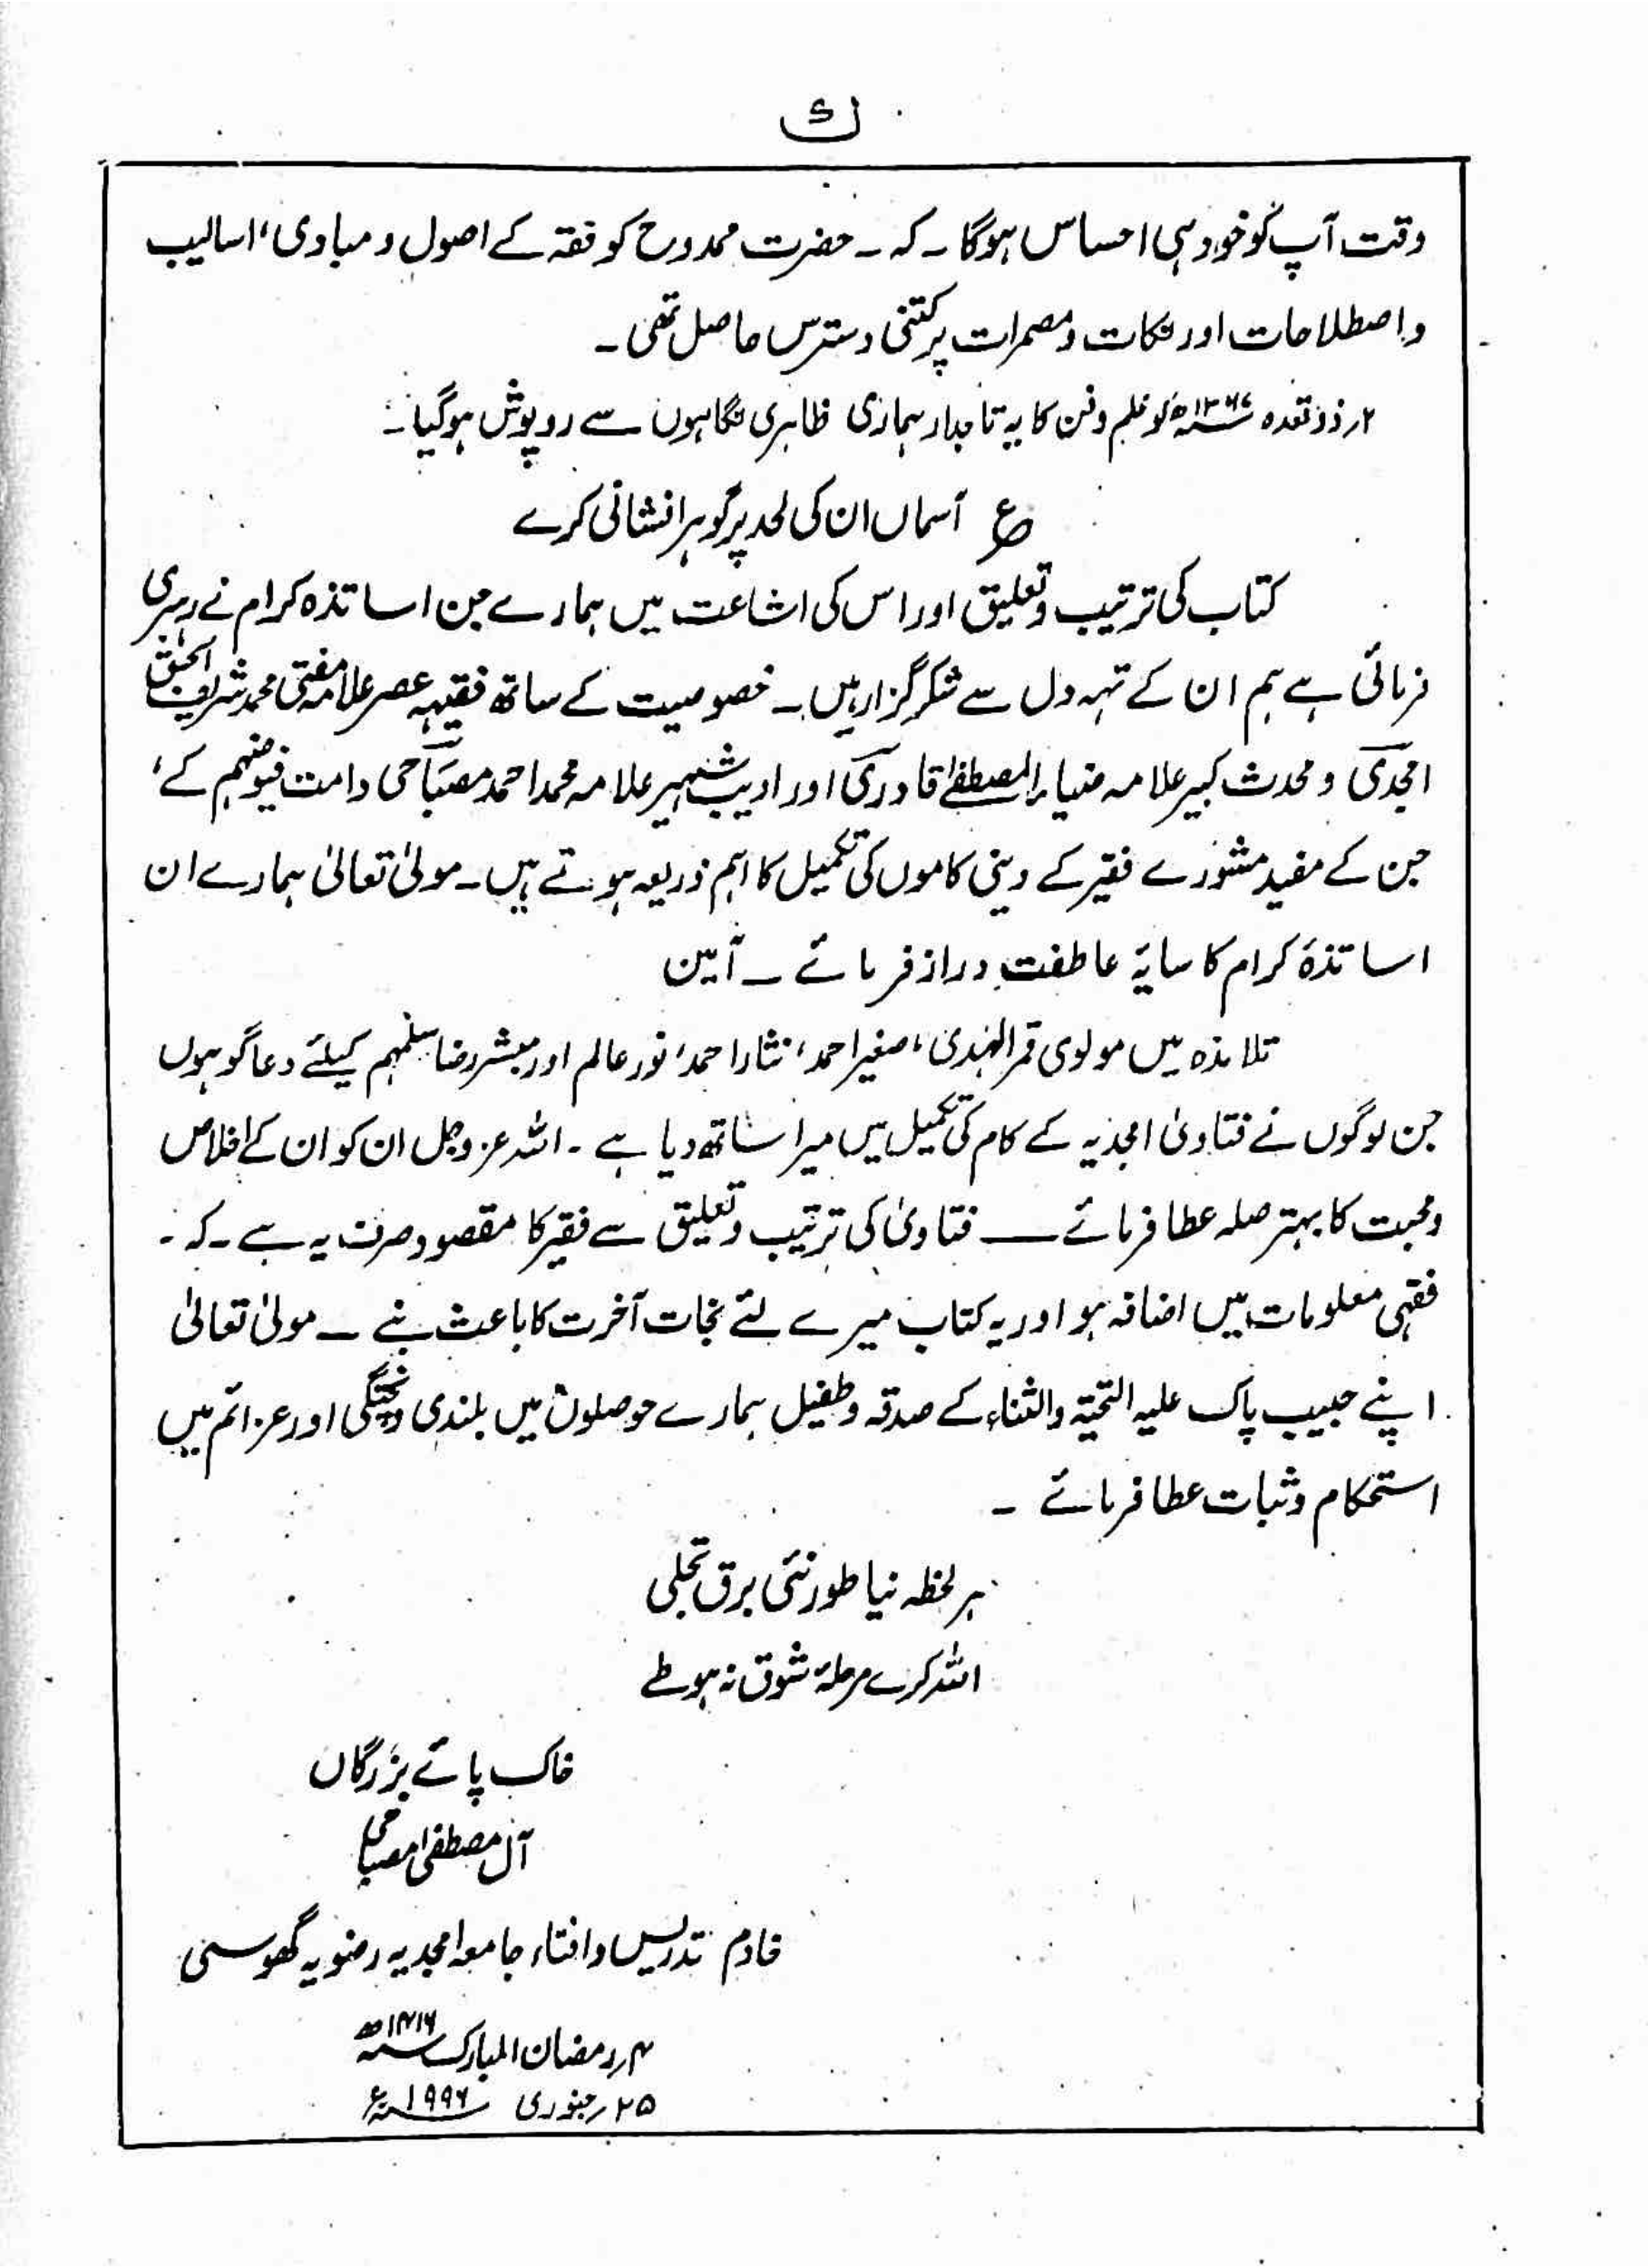 ک
وقت آپ کو خود ہی احساس ہوگا ۔ کہ ۔ حضرت ممدوح کو فقہ کے اصول و مبادی، اسالیب
واصطلاحات اور نکات و مصمرات پر کتنی دسترس حاصل تھی ۔
۲؍ ذوقعدہ ۱۳۶۷ھ کو علم وفن کا یہ تاجدار ہماری ظاہری نگاہوں سے روپوش ہوگیا ۔
ع آسماں ان کی لحد پر گوہر افشانی کرے
کتاب کی ترتیب وتعلیق اور اس کی اشاعت میں ہمارے جن اساتذہ کرام نے رہبری
فرمائی ہے ہم ان کے تہہ دل سے شکر گزار ہیں ۔ خصوصیت کے ساتھ فقیہہ عصر علامہ مفتی محمد شریف الحق
امجدی و محدث کبیر علامہ ضیاء المصطفےٰ قادری اور ادیب شہیر علامہ محمد احمد مصباحی دامت فیوضہم کے،
جن کے مفید مشورے فقیر کے دینی کاموں کی تکمیل کا اہم ذریعہ ہوتے ہیں ۔ مولیٰ تعالیٰ ہمارے ان
اساتذۂ کرام کا سایۂ عاطفت دراز فرمائے ۔ آمین
تلامذہ میں مولوی قمر الہدیٰ، صغیر احمد، نثار احمد، نور عالم اور مبشر رضا سلمہم کیلئے دعا گو ہوں
جن لوگوں نے فتاویٰ امجدیہ کے کام کی تکمیل میں میرا ساتھ دیا ہے ۔ اللہ عزوجل ان کو ان کے اخلاص
ومحبت کا بہتر صلہ عطا فرمائے ــــ فتاویٰ کی ترتیب وتعلیق سے فقیر کا مقصود صرف یہ ہے ۔ کہ ۔
فقہی معلومات میں اضافہ ہو اور یہ کتاب میرے لئے نجات آخرت کا باعث بنے ــ مولیٰ تعالیٰ
اپنے حبیب پاک علیہ التحیۃ والثناء کے صدقہ وطفیل ہمارے حوصلوں میں بلندی وپختگی اور عزائم میں
استحکام وثبات عطا فرمائے ۔
ہر لحظہ نیا طور نئی برق تجلی
اللہ کرے مرحلۂ شوق نہ ہو طے
خاک پائے بزرگاں
آل مصطفیٰ مصباحی
خادم تدریس وافتاء جامعہ امجدیہ رضویہ گھوسی
۴؍ رمضان المبارک ۱۴۱۶ھ
۲۵؍ جنوری ۱۹۹۶ء